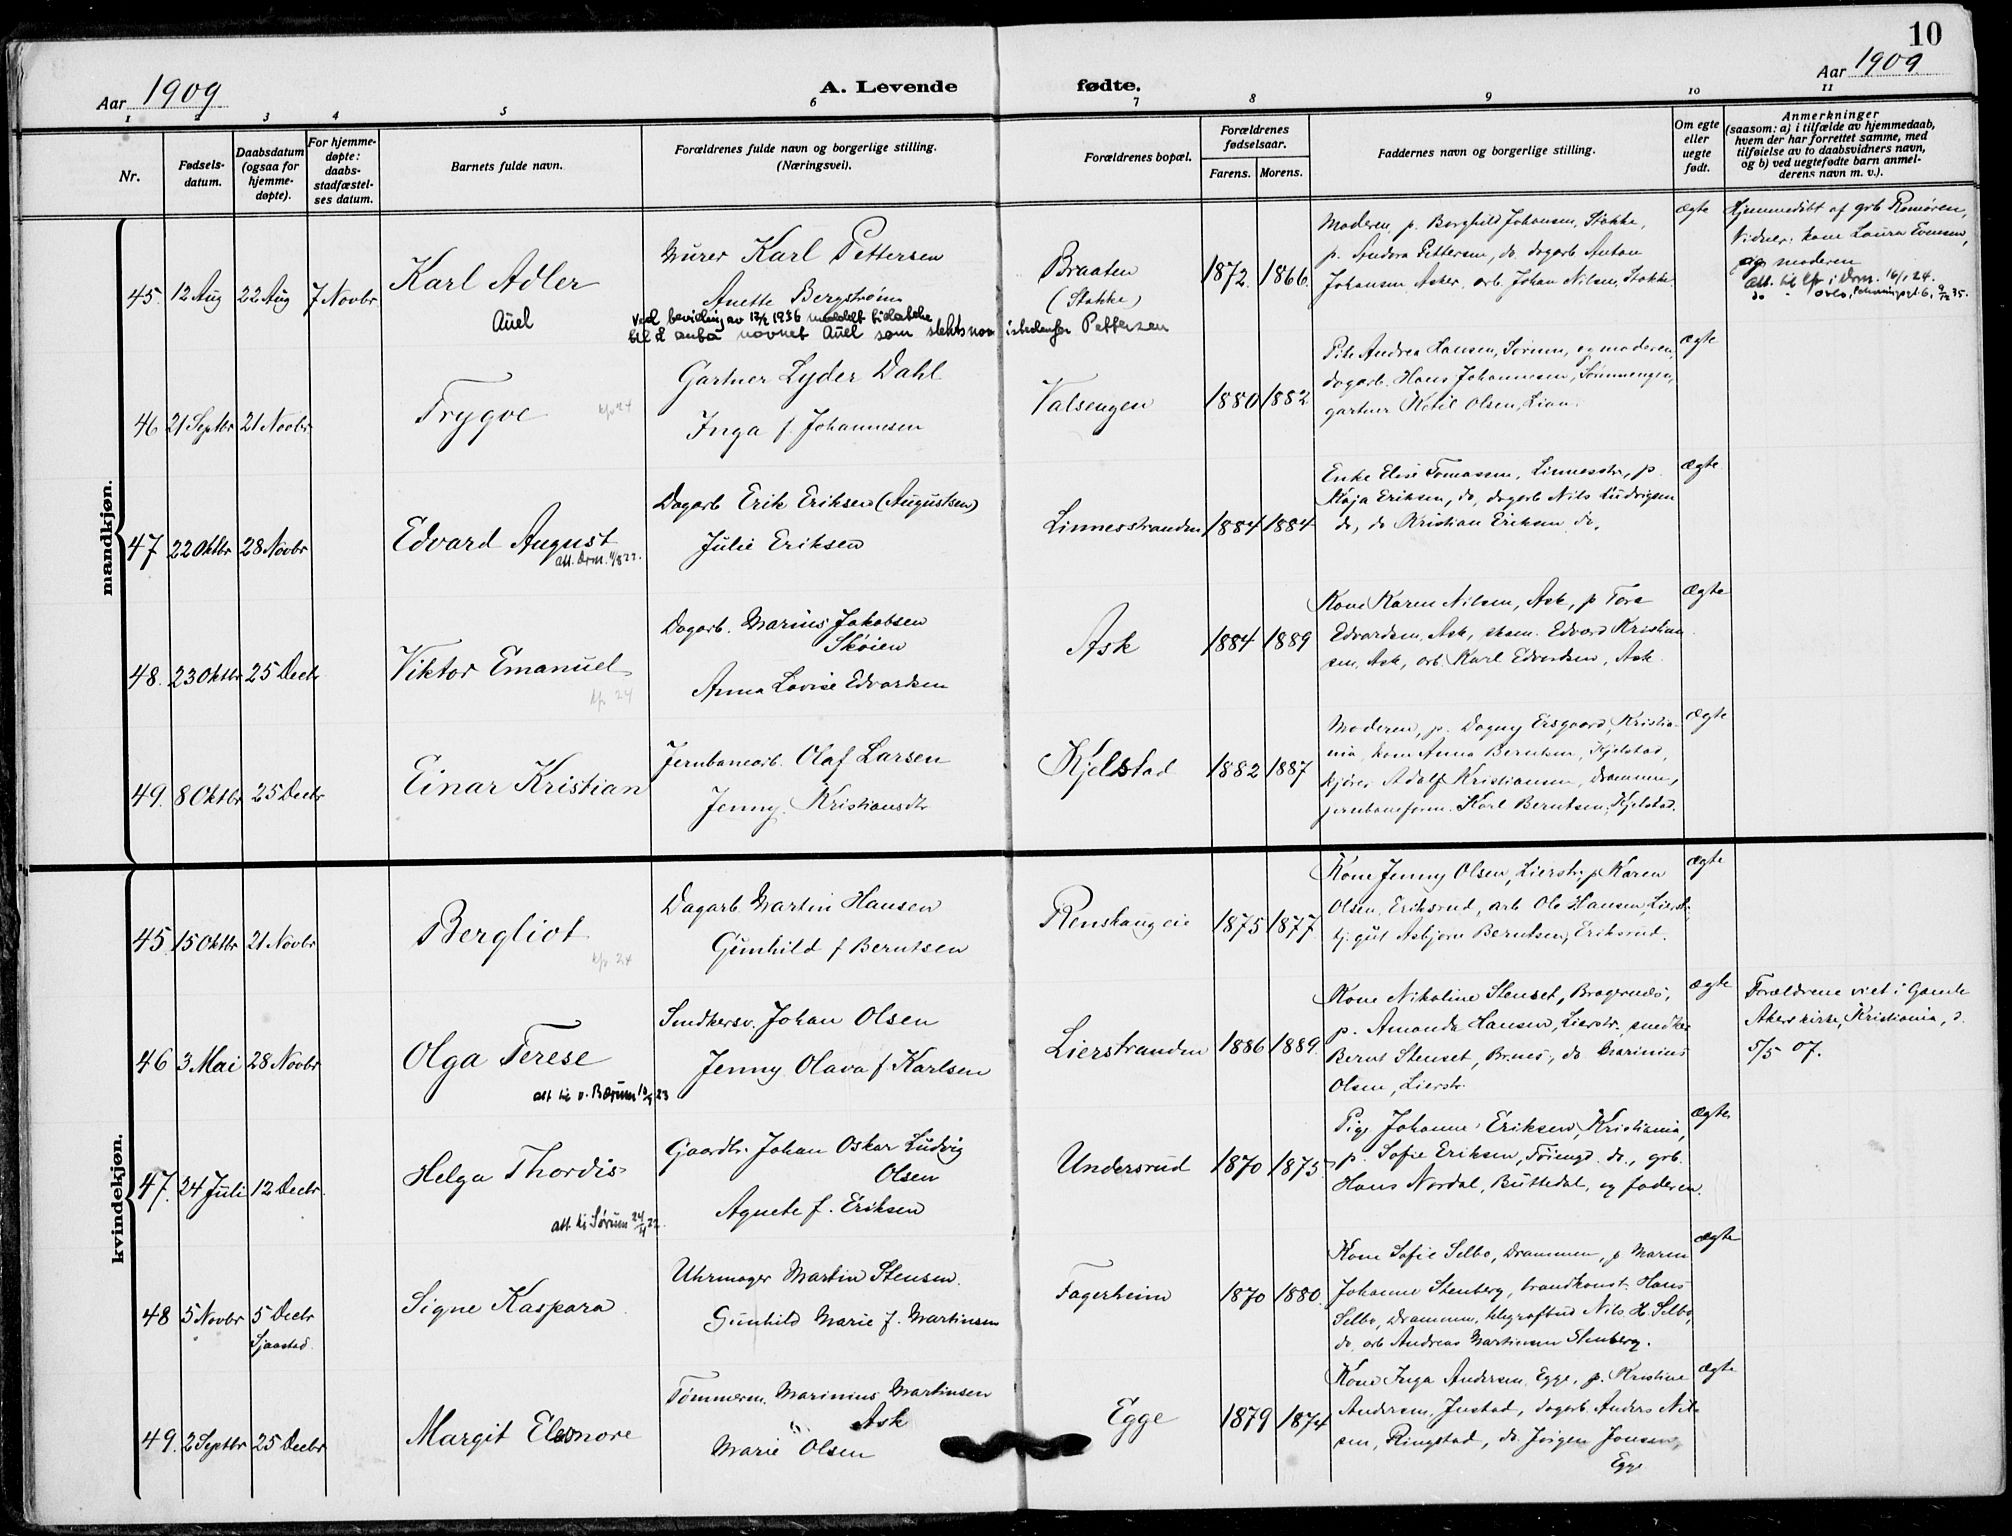 10
Aar 1909
A. Levende fødte.
Aar 1909
1 2 3 4 5 6 7 8 9 10 11
Nr.
Fødsels-
datum.
Daabsdatum
(ogsaa for
hjemme-
døpte).
For hjemme-
døpte:
daabs-
stadfæstel-
ses datum.
Barnets fulde navn.
Forældrenes fulde navn og borgerlige stilling.
(Næringsvei).
Forældrenes bopæl.
Forældrenes
fødselsaar.
Farens. Morens.
Faddernes navn og borgerlige stilling.
Om egte
eller
uegte
født.
Anmerkninger
(saasom: a) i tilfælde av hjemmedaab,
hvem der har forrettet samme, med
tilføielse av to daabsvidners navn,
og b) ved uegtefødte barn anmel-
derens navn m. v.).
mandkjøn.
45. 12 Aug 22 Aug 7 Novbr
Karl Adler
Auel
Murer Karl Pettersen
Anette Bergstrøm
Ved bevilling av 12/2 1936 meddelt tilladelse
til å anta navnet Auel som slektsnavn istedenfor Pettersen
Braaten
(Stokke)
1872 1866
Moderen, p. Borghild Johansen, Stokke,
p. Andora Pettersen, do. dagarb Anton
Johansen, Asker, arb. Johan Nilsen, Stokke.
ægte
Hjemmedøbt af grb Romøren,
Vidner: kone Laura Evensen,
og moderen
Att. til kfr i Drm. 16/1 24.
46 21 Septbr 21 Novbr
Trygve
kfr 24
Gartner Lyder Dahl
Inga f. Johannesen
Valsengen
1880 1882
Pike Andrea Hansen, Sørum, og moderen,
dagarb. Hans Johannesen, Tømmengen,
gartner Ketil Olsen, Lian.
ægte
47 22 Oktbr 28 Novbr
Edvard August
att. Drm. 11/8 22.
Dagarb Erik Eriksen (Augustsen)
Julie Eriksen
Linnesstranden
1884 1884
Enke Elise Tomassen, Linnesstr., p.
Kaja Eriksen, do, dagarb Nils Ludvigsen
do, do Kristian Eriksen do.
Ægte
48. 23 Oktbr 25 Decbr
Viktor Emanuel
kfr 24
Dagarb. Marius Jakobsen
Skøien
Anna Lovise Edvardsen
Ask
1884 1889
Kone Karen Nilsen, Ask, p Tora
Edvardsen, Ask, skom. Edvard Kristian-
sen, Ask, arb. Karl Edvardsen, Ask.
Ægte
49. 8 Oktbr 25 Decbr
Einar Kristian
Jernbanearb. Olaf Larsen
Jenny Kristiansdtr
Kjelstad
1882 1887
Moderen, p. Dagny Ersgaard, Kristia-
nia, kone Anna Berntsen, Kjelstad,
kjører Adolf Kristiansen, Drammen,
jernbaneform. Karl Berntsen, Kjelstad.
Ægte
kvindekjøn.
45. 15 Oktbr 21 Novbr
Bergliot
kfr 24
Dagarb. Martin Hansen
Gunhild f Berntsen
Renskaug eie
1875 1877
Kone Jenny Olsen, Lierstr, p Karen
Olsen, Eriksrud, arb Ole Hansen, Lierst-
tj. gut Asbjørn Berntsen, Eriksrud.
Ægte
46 3 Mai 28 Novbr
Olga Terese
att til v. Bærum 10/4 23
Snedkersv. Johan Olsen
Jenny Olava f. Karlsen
Lierstranden
1886 1889.
Kone Nikoline Stenset, Bragernæs,
p. Amanda Hansen, Lierstr. snedker
Bernt Stenset, Br.næs, do Marinius
Olsen, Lierstr.
ægte
Forældrene viet i Gamle
Akers kirke, Kristiania, d.
5/5 07.
47. 24 Juli 12 Decbr.
Helga Thordis
att. til Sørum 24/4 22.
Gaardbr. Johan Oskar Ludvig
Olsen
Agnete f. Eriksen
Undersrud
1870 1875
Pige Johanne Eriksen, Kristiania,
p. Sofie Eriksen, do., grb.
Hans Nordal, Büttedal, og faderen.
Ægte
48 5 Novbr 5 Decbr
Sjaastad.
Signe Kaspara
Uhrmager Martin Stensen.
Gunhild Marie f. Martinsen
Fagerheim
1870 1880.
Kone Sofie Selbo, Drammen, p Maren
Johanne Stenberg, brandkonst. Hans
Selbo, Drammen, telegrafbud Nils H. Selbo,
do, arb Andreas Martinsen Stenberg.
ægte
49. 2 Septbr 25 Decbr
Margit Eleonore
Tømmerm. Marinius Martinsen
Ask
Marie Olsen
Egge
1879 1874
Kone Inga Andersen, Egge, p. Kristine
Andersen, Justad, dagarb Anders Nil-
sen, Ringstad, do. Jørgen Jonsen,
Egge
Ægte